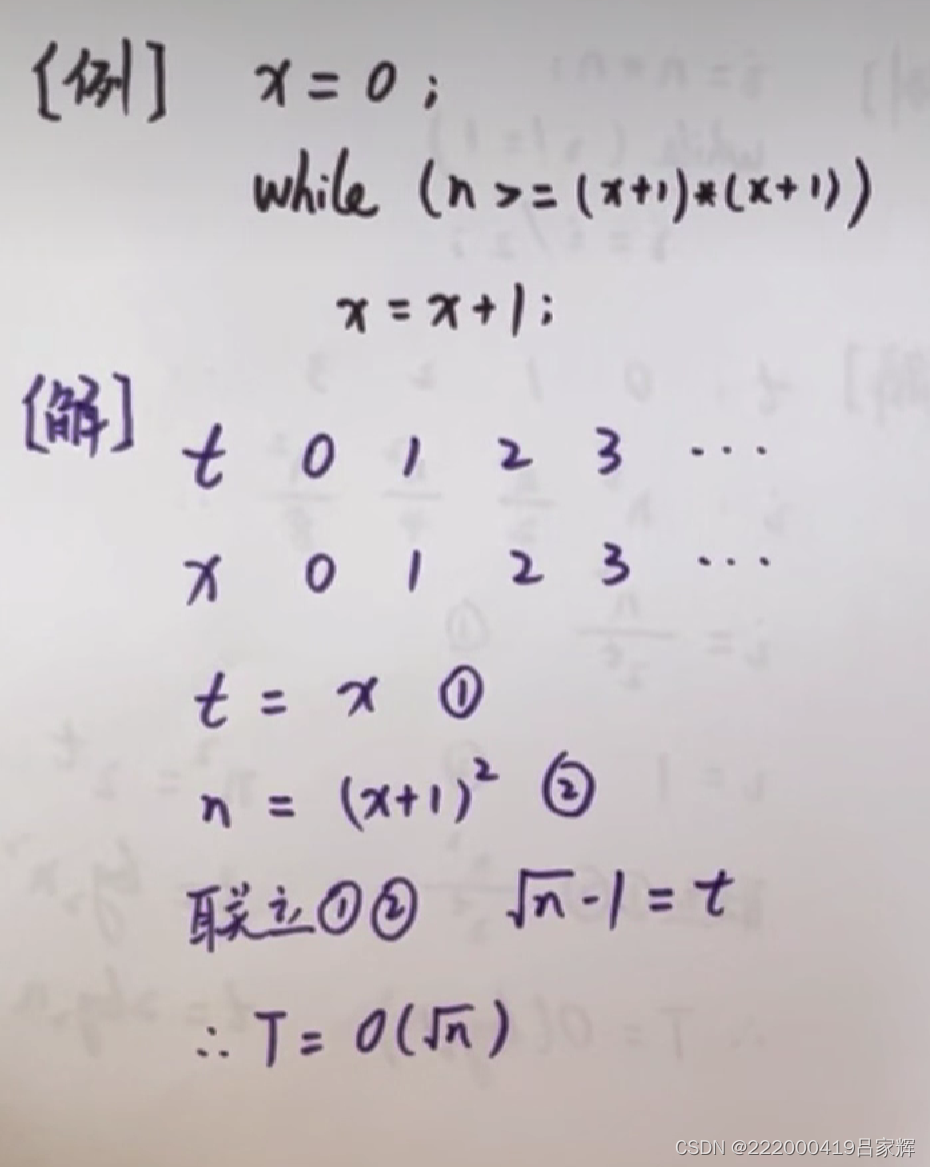 [例] x = 0 ;
while (n >= (x+1)*(x+1))
x = x+1;
[解]
t 0 1 2 3 ...
x 0 1 2 3 ...
t = x ①
n = (x+1)² ②
联立①② √n-1 = t
∴ T = O(√n)
CSDN @222000419吕家辉